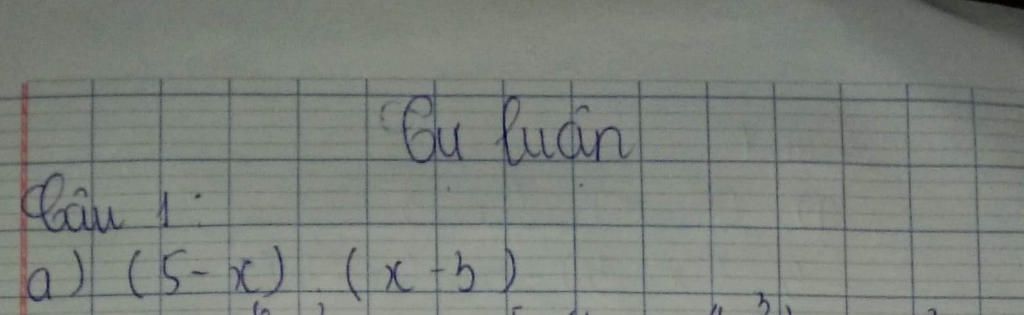 Tự luận
Câu 1:
a) (5-x).(x-3)